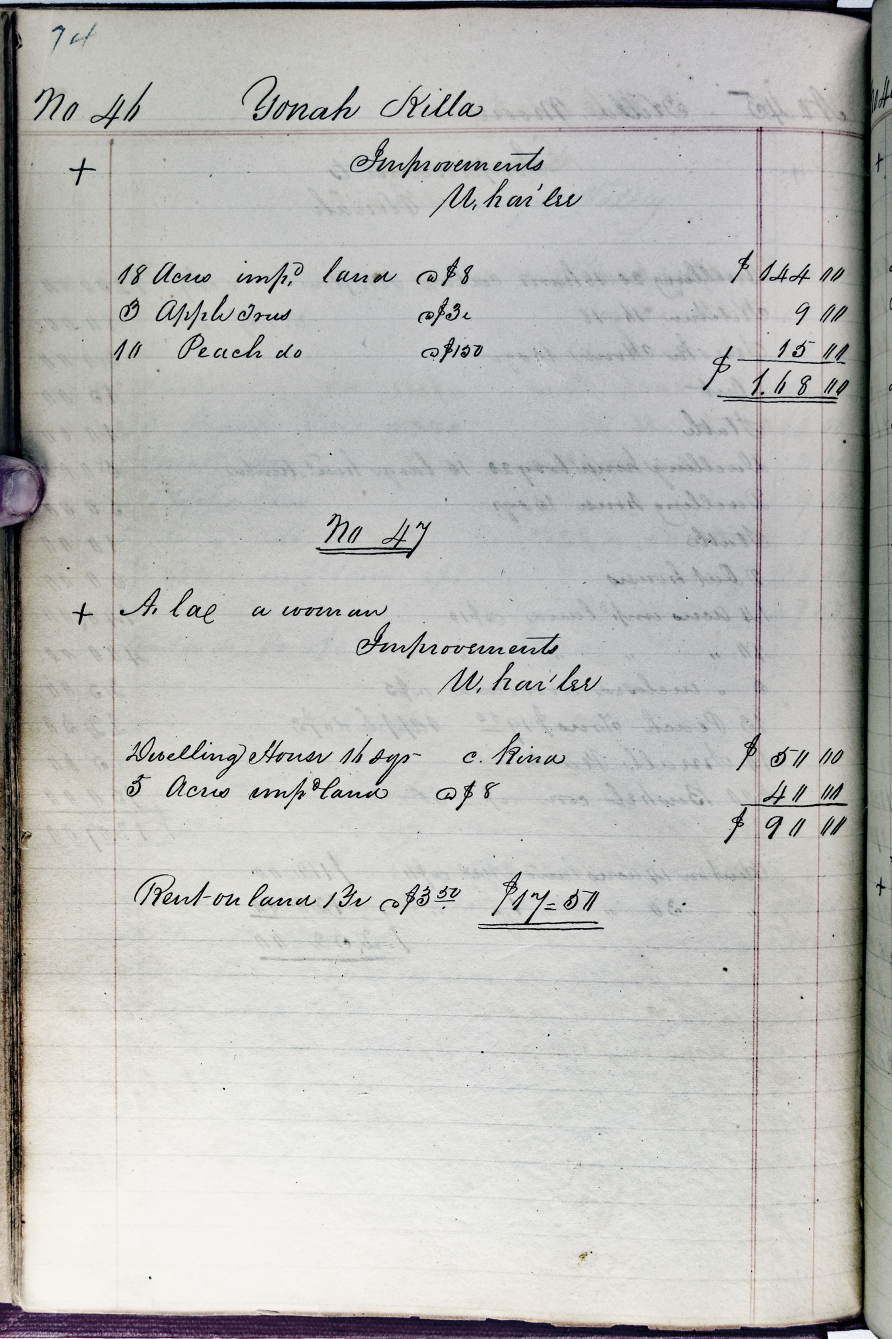 74
No 46 Yonah Killa
+ Improvements
U, har'lee
18 Acres imp,d land @ $8 $ 144 00
3 Apple Trees @ $3 9 00
10 Peach do @ $150 $ 15 00
1.68 00
No 47
+ A, lae a woman
Improvements
U, har'lee
Dwelling House 16 sqr c. kind $ 50 00
5 Acres imp,d land @ $8 40 00
$ 90 00
Rent on land @ $3 50 $17=50